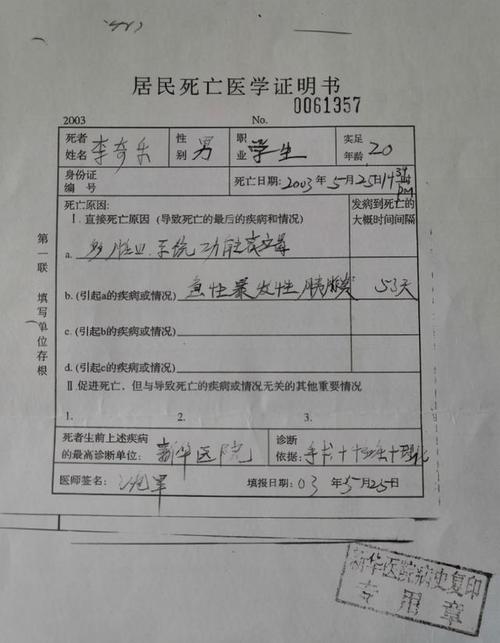 居民死亡医学证明书
2003 No. 0061357
死者姓名 李奇乐 性别 男 职业 学生 实足年龄 20
身份证编号 死亡日期:2003年5月25日
死亡原因: 发病到死亡的大概时间间隔
Ⅰ.直接死亡原因(导致死亡的最后的疾病和情况)
a. 多脏器系统功能衰竭
b.(引起a的疾病或情况) 急性暴发性胰腺炎 53天
c.(引起b的疾病或情况)
d.(引起c的疾病或情况)
Ⅱ促进死亡、但与导致死亡的疾病或情况无关的其他重要情况
1. 2. 3.
死者生前上述疾病的最高诊断单位: 新华医院 诊断依据: 手术+
医师签名: 填报日期:03年5月25日
第一联 填写单位存根
新华医院病史复印
专用章